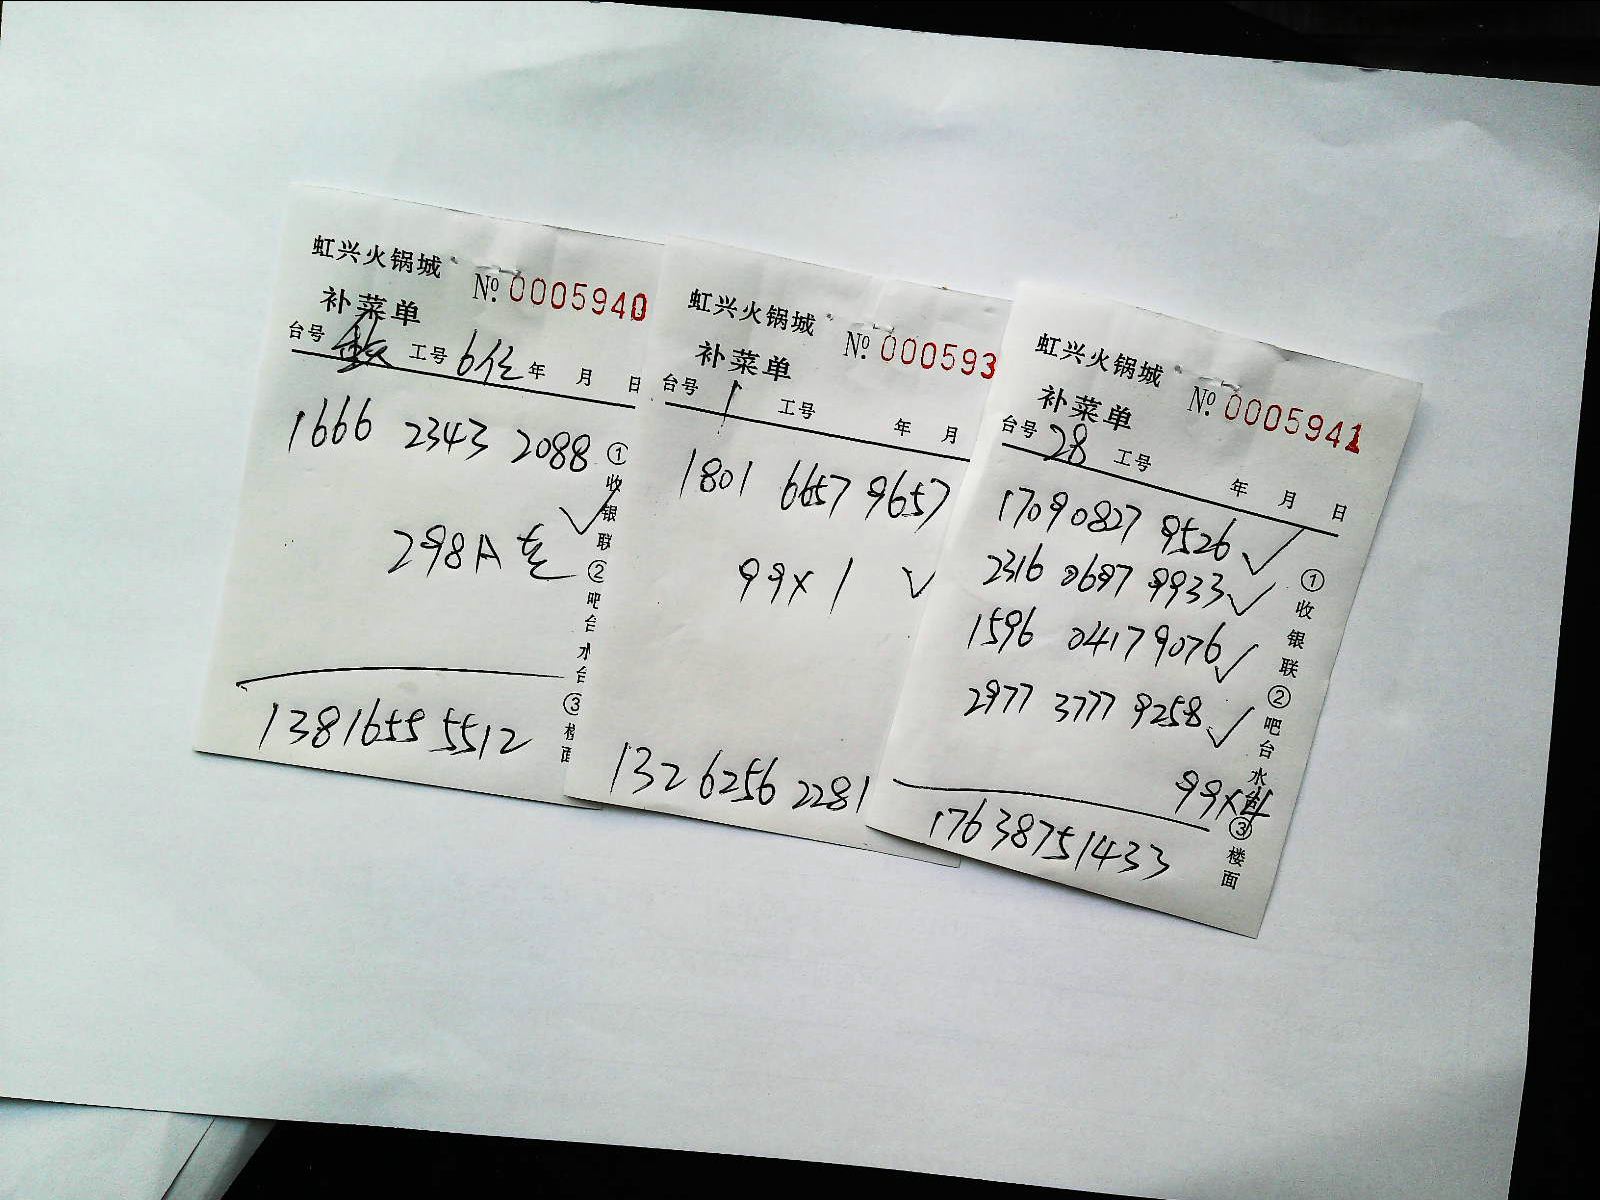 虹兴火锅城
№ 0005940
补菜单
台号 工号 6位 年 月 日
1666 2343 2088
298A 套
13816555512
①收银联②吧台水台③楼面
虹兴火锅城
№ 000593
补菜单
台号 1 工号 年 月
1801 6657 9657
99×1
132 6256 2281
虹兴火锅城
№ 0005941
补菜单
台号 28 工号 年 月 日
1709 0827 9526
2316 0697 9933
1596 0417 9076
2977 3777 9258
99×4
17638751433
①收银联②吧台水台③楼面